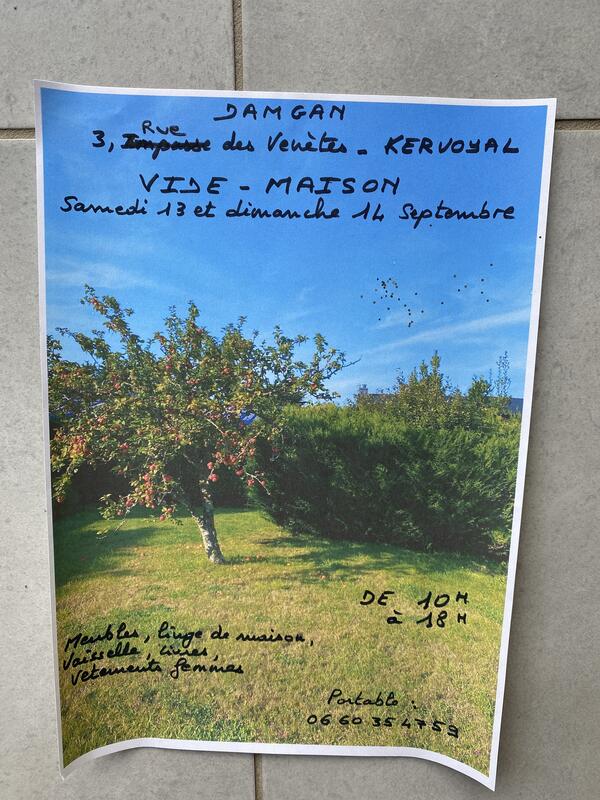 DAMGAN
3, Rue des Venètes - KERVOYAL
VIDE - MAISON
Samedi 13 et dimanche 14 Septembre
DE 10H
à 18H
Meubles, linge de maison,
Vaisselle, livres,
Vêtements femmes
Portable :
06 60 35 47 59